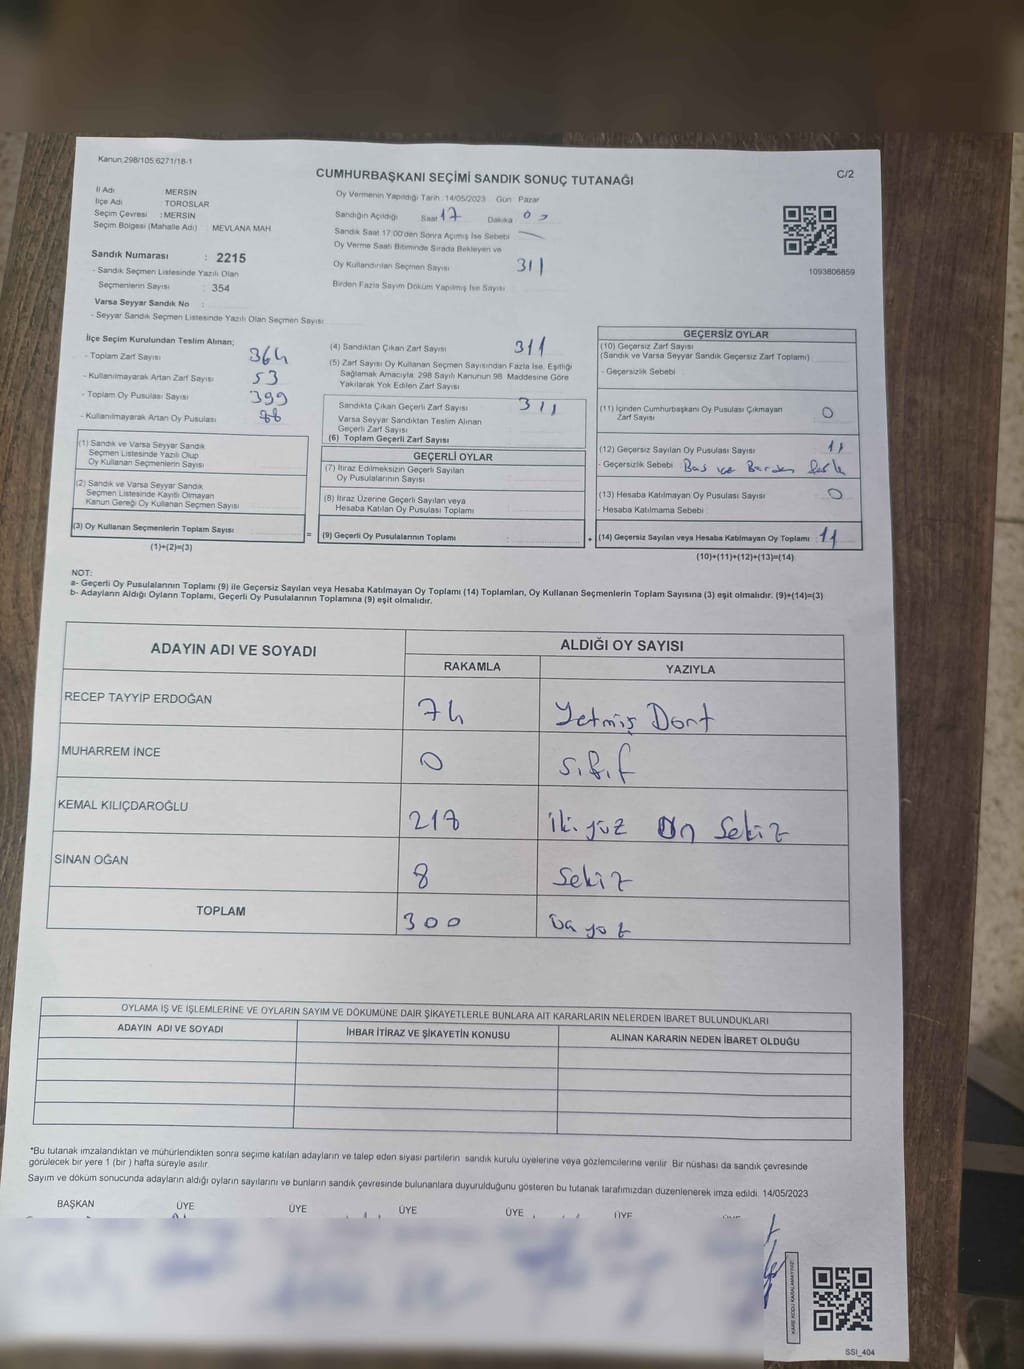 Kanun:298/105;6271/18-1
CUMHURBAŞKANI SEÇİMİ SANDIK SONUÇ TUTANAĞI
C/2
İl Adı MERSIN
İlçe Adı TOROSLAR
Seçim Çevresi : MERSIN
Seçim Bölgesi (Mahalle Adı) MEVLANA MAH
Sandık Numarası : 2215
- Sandık Seçmen Listesinde Yazılı Olan
Seçmenlerin Sayısı : 354
Varsa Seyyar Sandık No :
- Seyyar Sandık Seçmen Listesinde Yazılı Olan Seçmen Sayısı:
Oy Vermenin Yapıldığı Tarih: 14/05/2023 Gün: Pazar
Sandığın Açıldığı Saat 17 Dakika: 00
Sandık Saat 17:00'den Sonra Açılmış İse Sebebi
Oy Verme Saati Bitiminde Sırada Bekleyen ve
Oy Kullandırılan Seçmen Sayısı 311
Birden Fazla Sayım Döküm Yapılmış İse Sayısı
1093806859
İlçe Seçim Kurulundan Teslim Alınan;
- Toplam Zarf Sayısı 364
- Kullanılmayarak Artan Zarf Sayısı 53
- Toplam Oy Pusulası Sayısı 399
- Kullanılmayarak Artan Oy Pusulası 88
(1) Sandık ve Varsa Seyyar Sandık
Seçmen Listesinde Yazılı Olup
Oy Kullanan Seçmenlerin Sayısı
(2) Sandık ve Varsa Seyyar Sandık
Seçmen Listesinde Kayıtlı Olmayan
Kanun Gereği Oy Kullanan Seçmen Sayısı
(3) Oy Kullanan Seçmenlerin Toplam Sayısı
(1)+(2)=(3)
(4) Sandıktan Çıkan Zarf Sayısı 311
(5) Zarf Sayısı Oy Kullanan Seçmen Sayısından Fazla İse, Eşitliği
Sağlamak Amacıyla 298 Sayılı Kanunun 98. Maddesine Göre
Yakılarak Yok Edilen Zarf Sayısı
Sandıkta Çıkan Geçerli Zarf Sayısı 311
Varsa Seyyar Sandıktan Teslim Alınan
Geçerli Zarf Sayısı
(6) Toplam Geçerli Zarf Sayısı
GEÇERLİ OYLAR
(7) İtiraz Edilmeksizin Geçerli Sayılan
Oy Pusulalarının Sayısı
(8) İtiraz Üzerine Geçerli Sayılan veya
Hesaba Katılan Oy Pusulası Toplamı
= (9) Geçerli Oy Pusulalarının Toplamı :
GEÇERSİZ OYLAR
(10) Geçersiz Zarf Sayısı
(Sandık ve Varsa Seyyar Sandık Geçersiz Zarf Toplamı)
- Geçersizlik Sebebi
(11) İçinden Cumhurbaşkanı Oy Pusulası Çıkmayan
Zarf Sayısı 0
(12) Geçersiz Sayılan Oy Pusulası Sayısı 11
- Geçersizlik Sebebi
(13) Hesaba Katılmayan Oy Pusulası Sayısı 0
- Hesaba Katılmama Sebebi
+ (14) Geçersiz Sayılan veya Hesaba Katılmayan Oy Toplamı : 11
(10)+(11)+(12)+(13)=(14)
NOT:
a- Geçerli Oy Pusulalarının Toplamı (9) ile Geçersiz Sayılan veya Hesaba Katılmayan Oy Toplamı (14) Toplamları, Oy Kullanan Seçmenlerin Toplam Sayısına (3) eşit olmalıdır. (9)+(14)=(3)
b- Adayların Aldığı Oyların Toplamı, Geçerli Oy Pusulalarının Toplamına (9) eşit olmalıdır.
ADAYIN ADI VE SOYADI
ALDIĞI OY SAYISI
RAKAMLA YAZIYLA
RECEP TAYYİP ERDOĞAN 74 Yetmiş Dört
MUHARREM İNCE 0 sıfır
KEMAL KILIÇDAROĞLU 218 iki yüz On Sekiz
SİNAN OĞAN 8 Sekiz
TOPLAM 300
OYLAMA İŞ VE İŞLEMLERİNE VE OYLARIN SAYIM VE DÖKÜMÜNE DAİR ŞİKAYETLERLE BUNLARA AİT KARARLARIN NELERDEN İBARET BULUNDUKLARI
ADAYIN ADI VE SOYADI İHBAR İTİRAZ VE ŞİKAYETİN KONUSU ALINAN KARARIN NEDEN İBARET OLDUĞU
*Bu tutanak imzalandıktan ve mühürlendikten sonra seçime katılan adayların ve talep eden siyasi partilerin sandık kurulu üyelerine veya gözlemcilerine verilir. Bir nüshası da sandık çevresinde
görülecek bir yere 1 (bir) hafta süreyle asılır.
Sayım ve döküm sonucunda adayların aldığı oyların sayılarını ve bunların sandık çevresinde bulunanlara duyurulduğunu gösteren bu tutanak tarafımızdan düzenlenerek imza edildi. 14/05/2023
BAŞKAN ÜYE ÜYE ÜYE ÜYE ÜYE ÜYE
KARE KODU KARALAMAYINIZ!
SSI_404